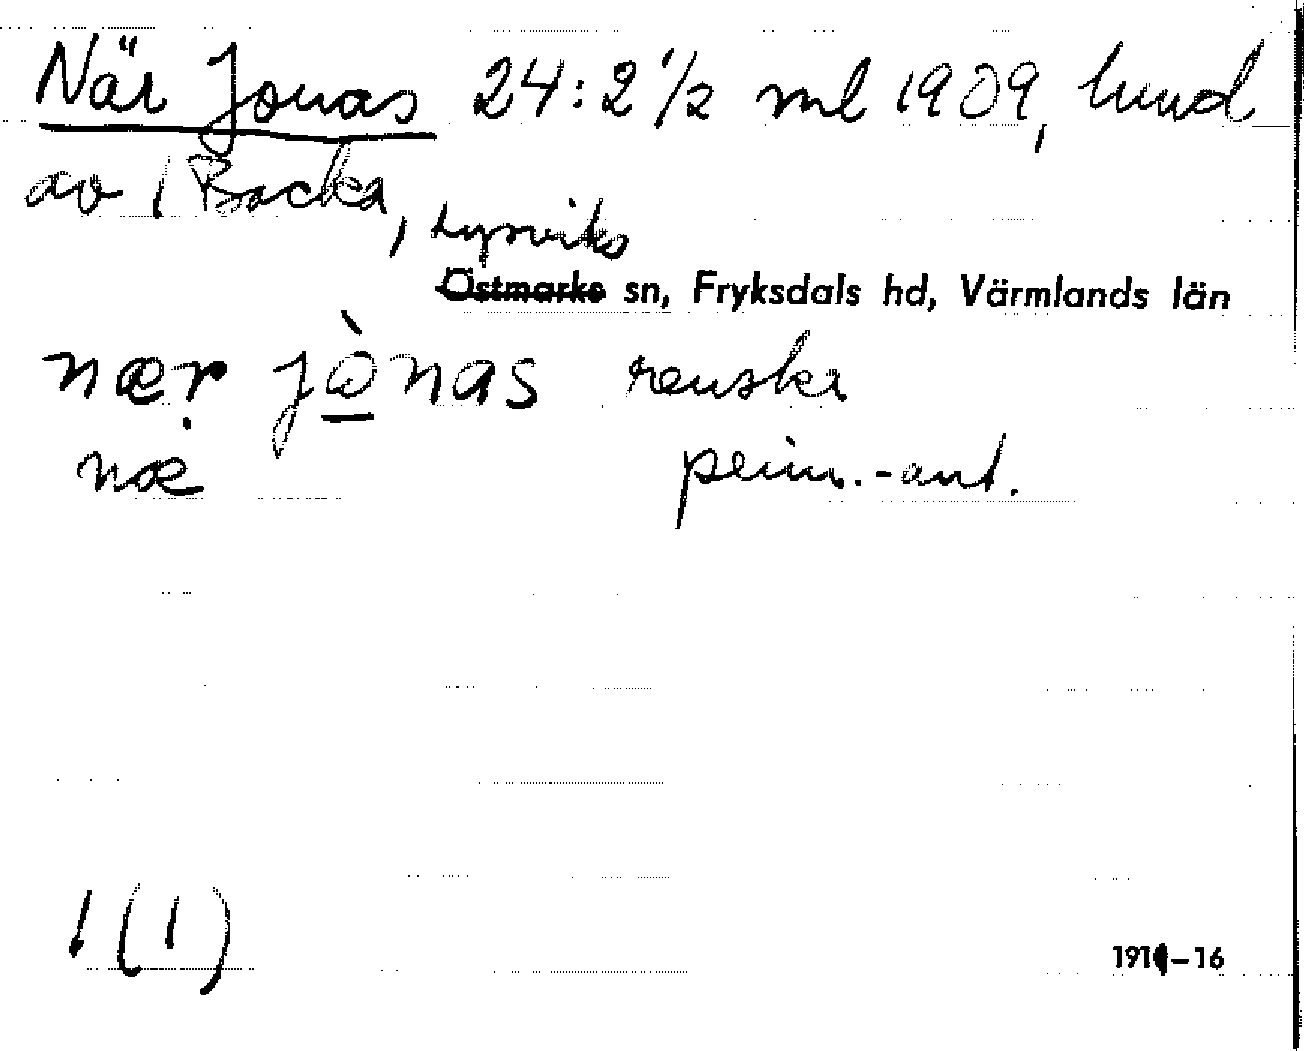 När Jonas 24:2 1/2 ml 1909, hmd
av 1 Backa, Lysviks
Östmarks sn, Fryksdals hd, Värmlands län
nær jò̱nas renskr
næ prim.-ant.
1 (1)
191 -16